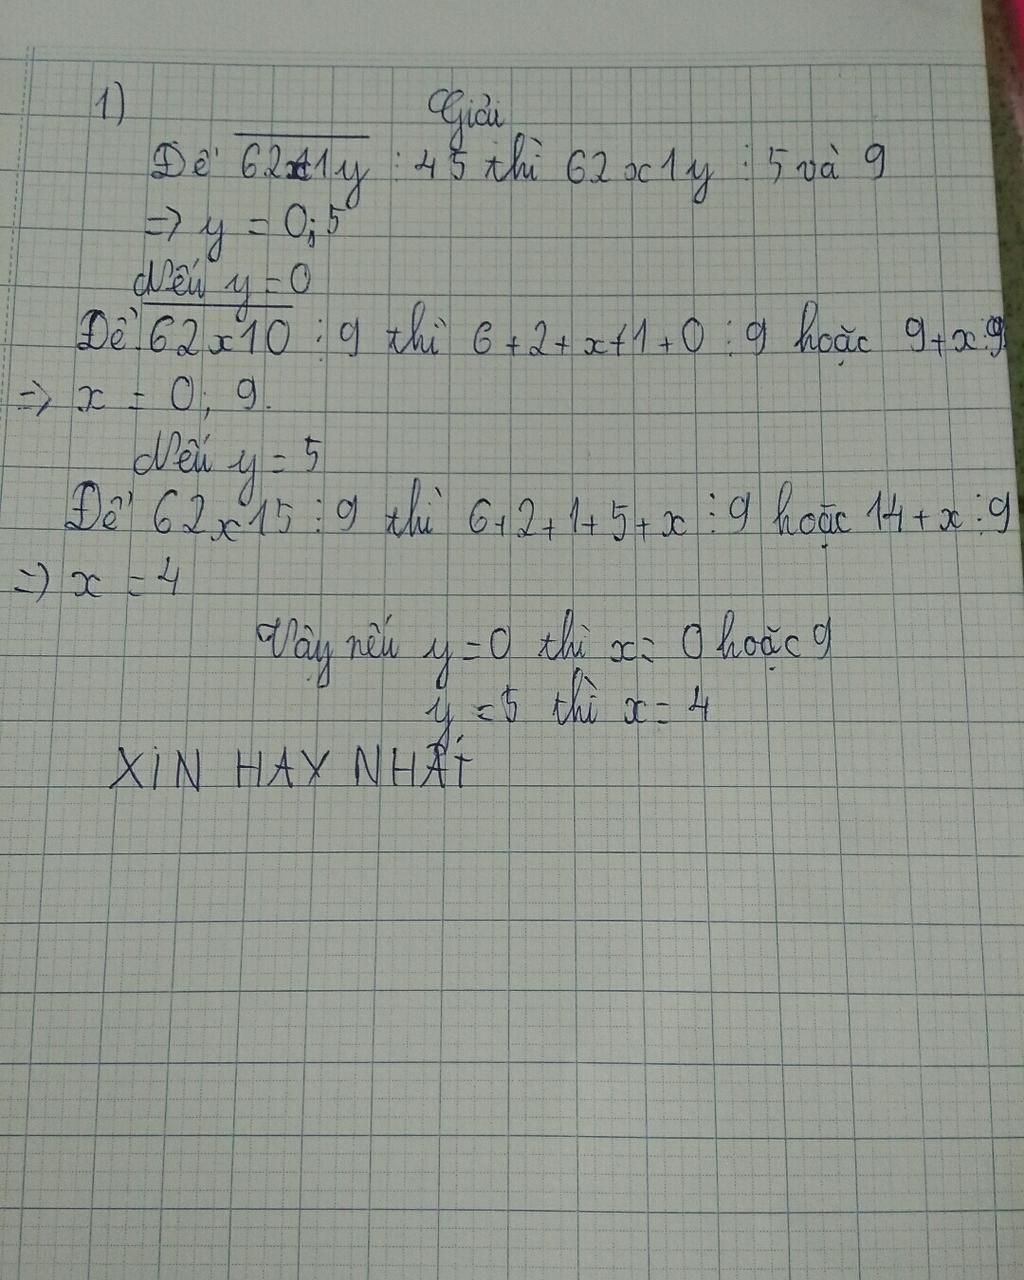 1) Giải
Để 62x1y ⋮ 45 thì 62x1y ⋮ 5 và 9
=> y = 0; 5
Nếu y = 0
Để 62x10 ⋮ 9 thì 6 + 2 + x + 1 + 0 ⋮ 9 hoặc 9 + x ⋮ 9
=> x = 0; 9.
Nếu y = 5
Để 62x15 ⋮ 9 thì 6 + 2 + 1 + 5 + x ⋮ 9 hoặc 14 + x ⋮ 9
=> x = 4
Vậy nếu y = 0 thì x = 0 hoặc 9
y = 5 thì x = 4
XIN HAY NHẤT